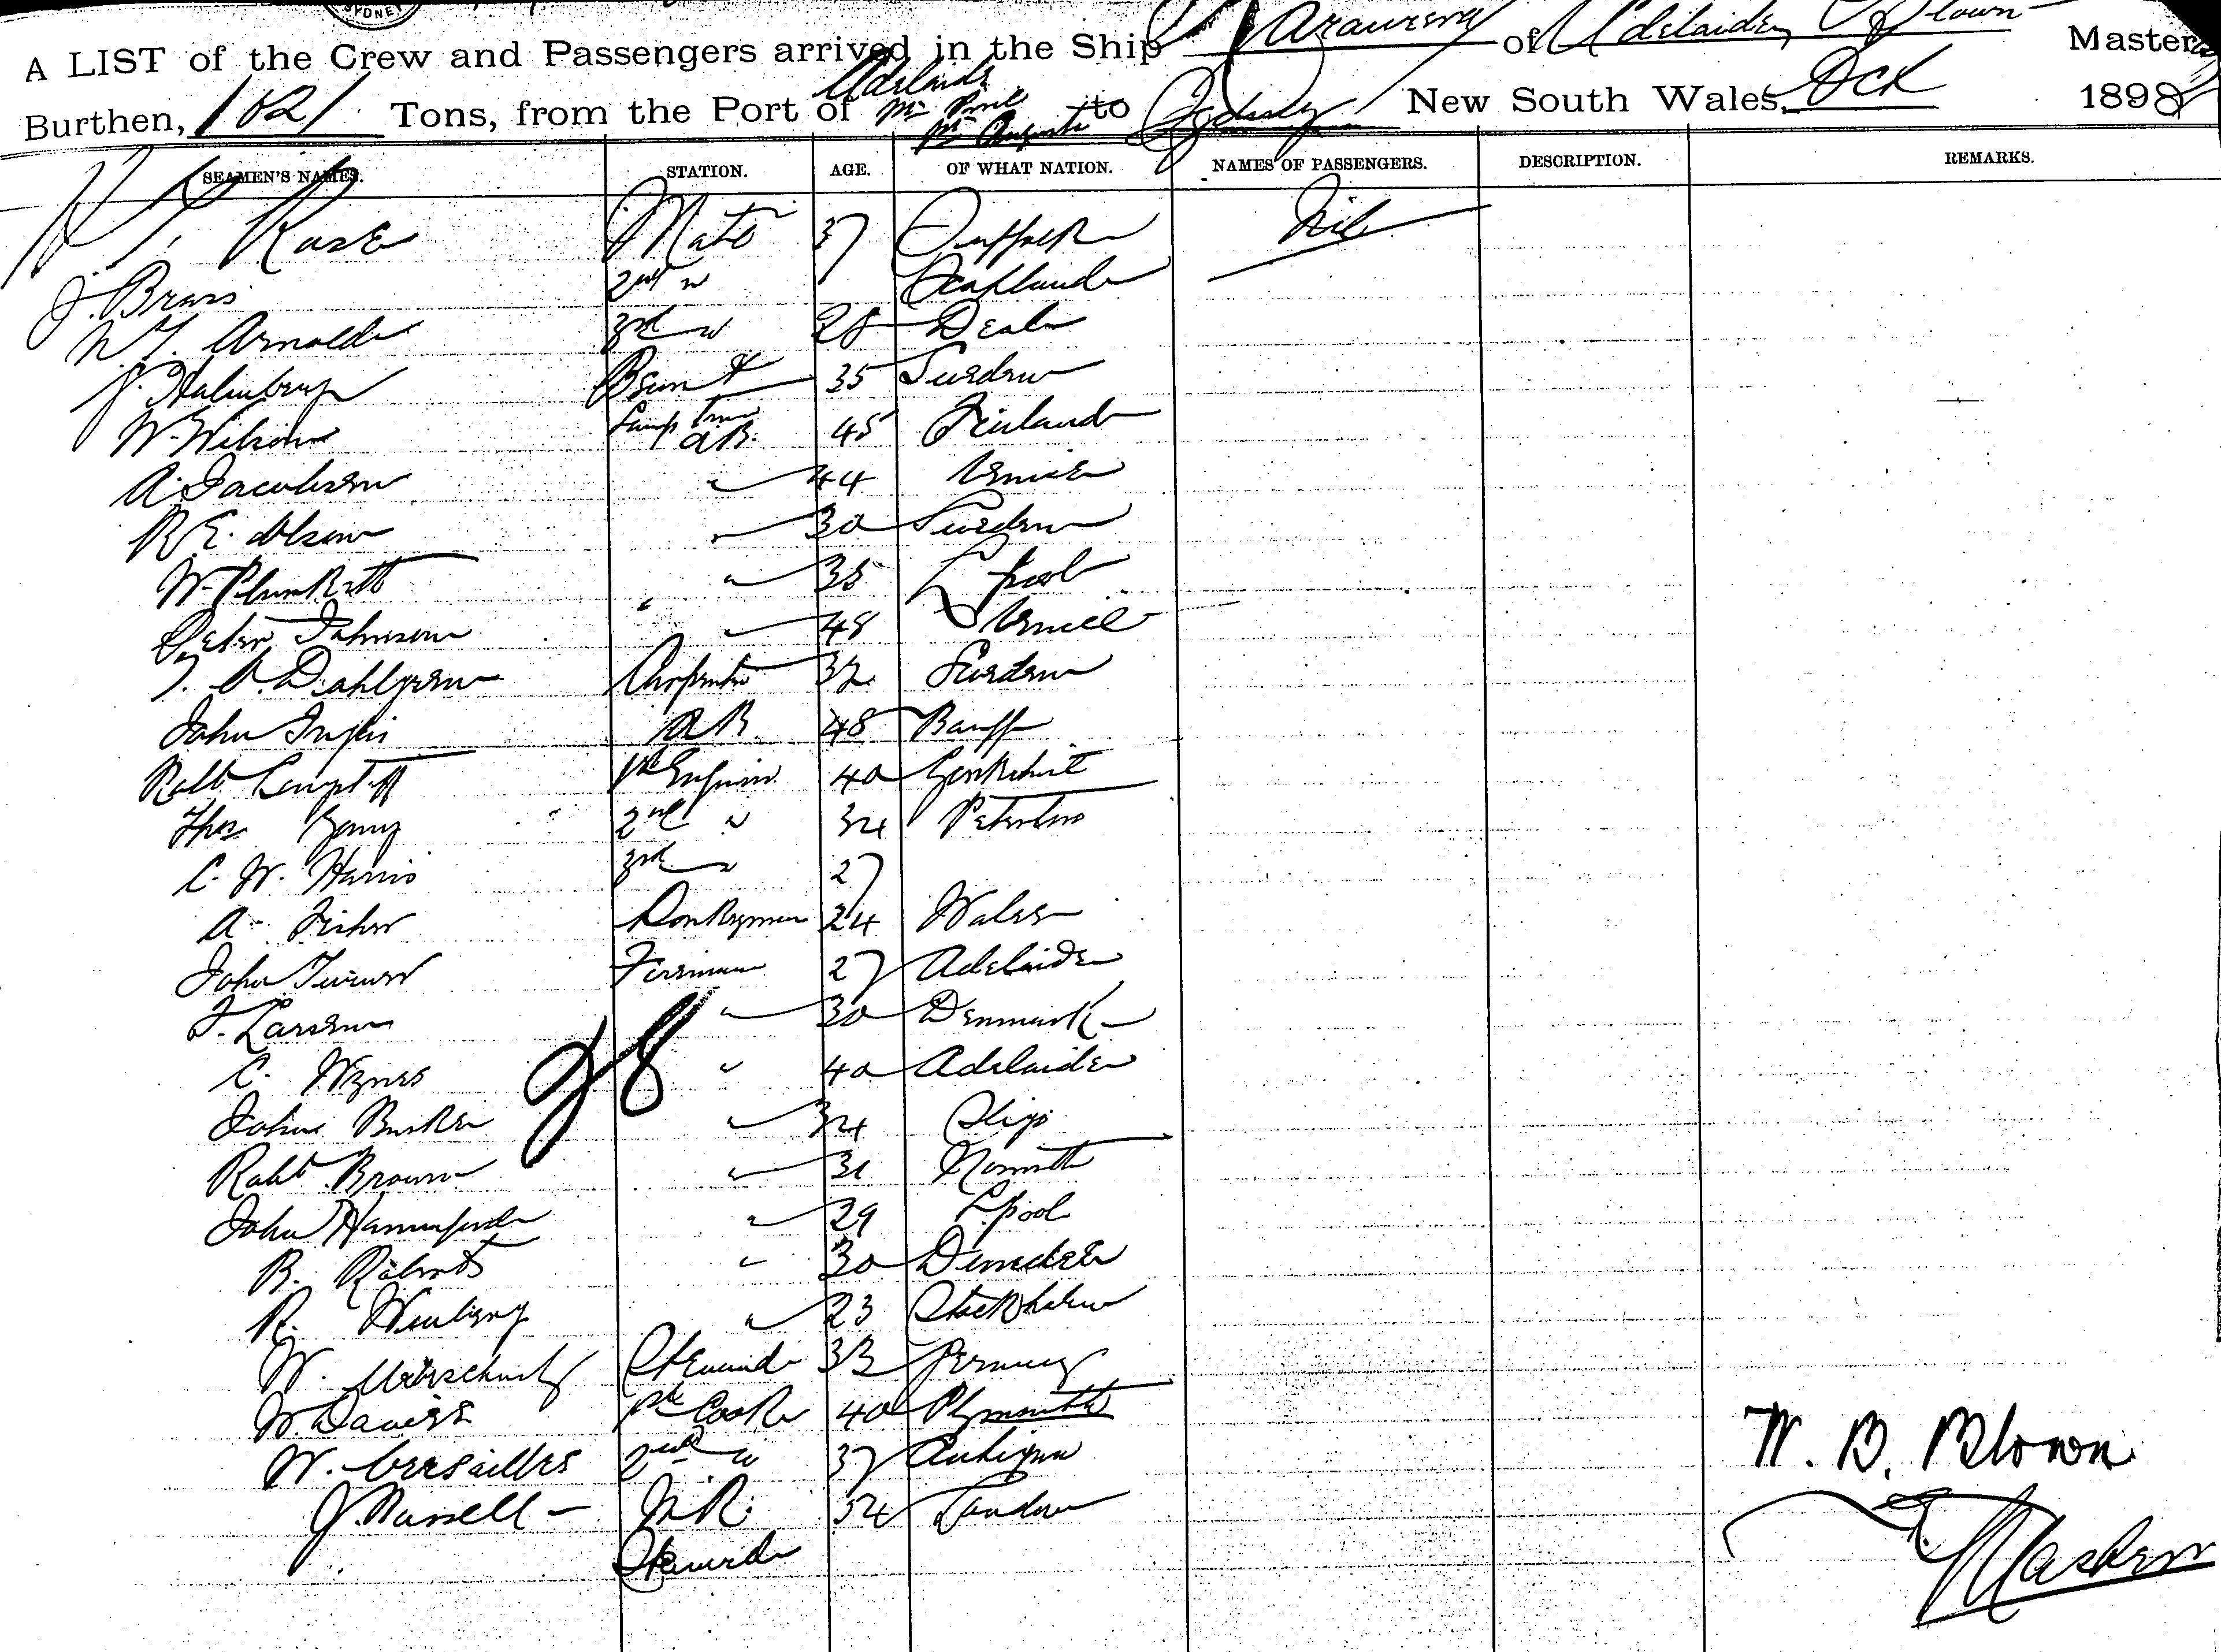 SYDNEY
A LIST of the Crew and Passengers arrived in the Ship Yarawera of Adelaide, Blown Master,
Burthen, 1021 Tons, from the Port of Adelaide Pt Pirie Pt Augusta to Sydney New South Wales, Oct 1898
SEAMEN'S NAMES. STATION. AGE. OF WHAT NATION. NAMES OF PASSENGERS. DESCRIPTION. REMARKS.
Rose Mate 37 Suffolk Nil
J. Brass 2nd " Scotland
W. J. Arnold 3rd " 28 Deal
J. Halmberg 35 Sweden
W. Wilson Lamp Trim A.B. 45 Finland
A. Jacobsen " 44 Venice
R. E. Olson " 30 Sweden
W. Plunkett " 35 L'pool
Peter Johnson " 48 Venice
Dahlgren Carpenter 32 Sweden
John Inglis A B 48 Banff
Robt 1st Engineer 40 Yorkshire
Thos 2nd " 34
C. W. Harris 3rd " 27
A. Fisher Donkeyman 24 Wales
John Turner Fireman 27 Adelaide
J. Larsen " 30 Denmark
C. " 40 Adelaide
John Burke " 34 Sligo
Robt Brown " 31
John Hannaford " 29 L'pool
R. Roberts " 30 Dundee
R. " 23 Stockholm
28
W. Steward 33 Germany
W. Davies 1st Cook 40 Plymouth
W. Versailles 2nd " 37 Antigua
J. Russell - M.R. Steward 34 London
W. B. Blown
Master